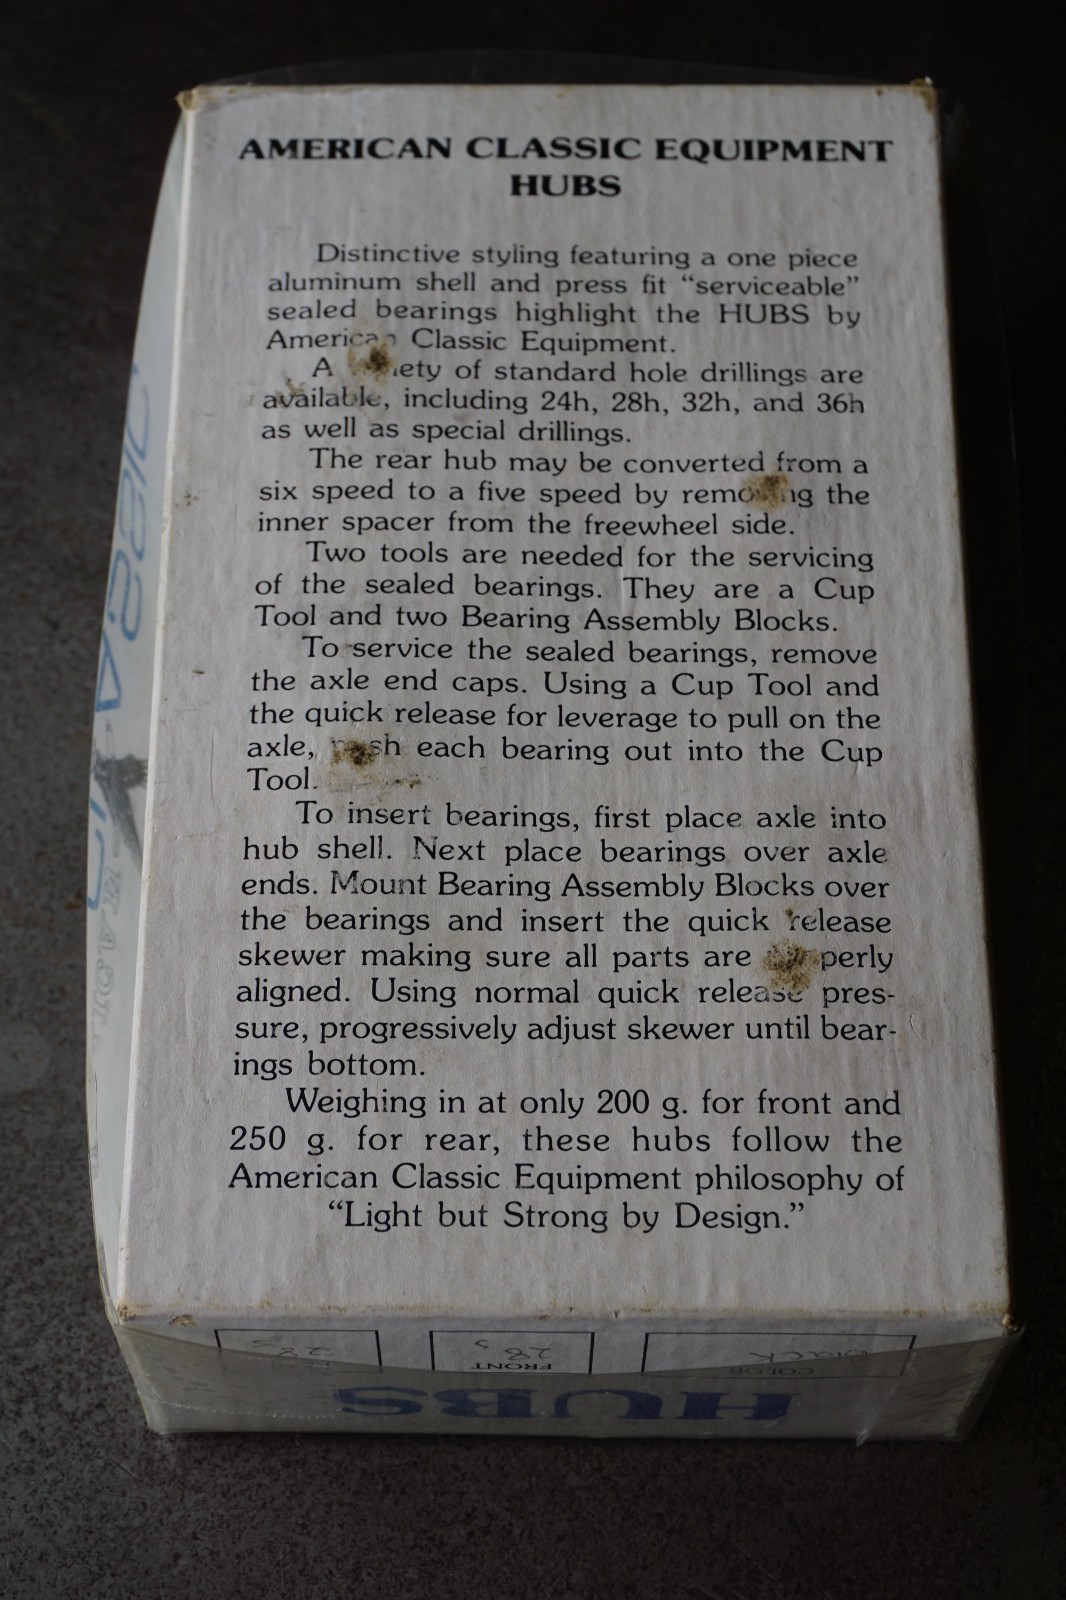 AMERICAN CLASSIC EQUIPMENT
HUBS
Distinctive styling featuring a one piece
aluminum shell and press fit “serviceable”
sealed bearings highlight the HUBS by
American Classic Equipment.
A of standard hole drillings are
available, including 24h, 28h, 32h, and 36h
as well as special drillings.
The rear hub may be converted from a
six speed to a five speed by removing the
inner spacer from the freewheel side.
Two tools are needed for the servicing
of the sealed bearings. They are a Cup
Tool and two Bearing Assembly Blocks.
To service the sealed bearings, remove
the axle end caps. Using a Cup Tool and
the quick release for leverage to pull on the
axle, each bearing out into the Cup
Tool.
To insert bearings, first place axle into
hub shell. Next place bearings over axle
ends. Mount Bearing Assembly Blocks over
the bearings and insert the quick release
skewer making sure all parts are
aligned. Using normal quick release pres-
sure, progressively adjust skewer until bear-
ings bottom.
Weighing in at only 200 g. for front and
250 g. for rear, these hubs follow the
American Classic Equipment philosophy of
“Light but Strong by Design.”
HUBS
COLOR
Black
FRONT
28 s